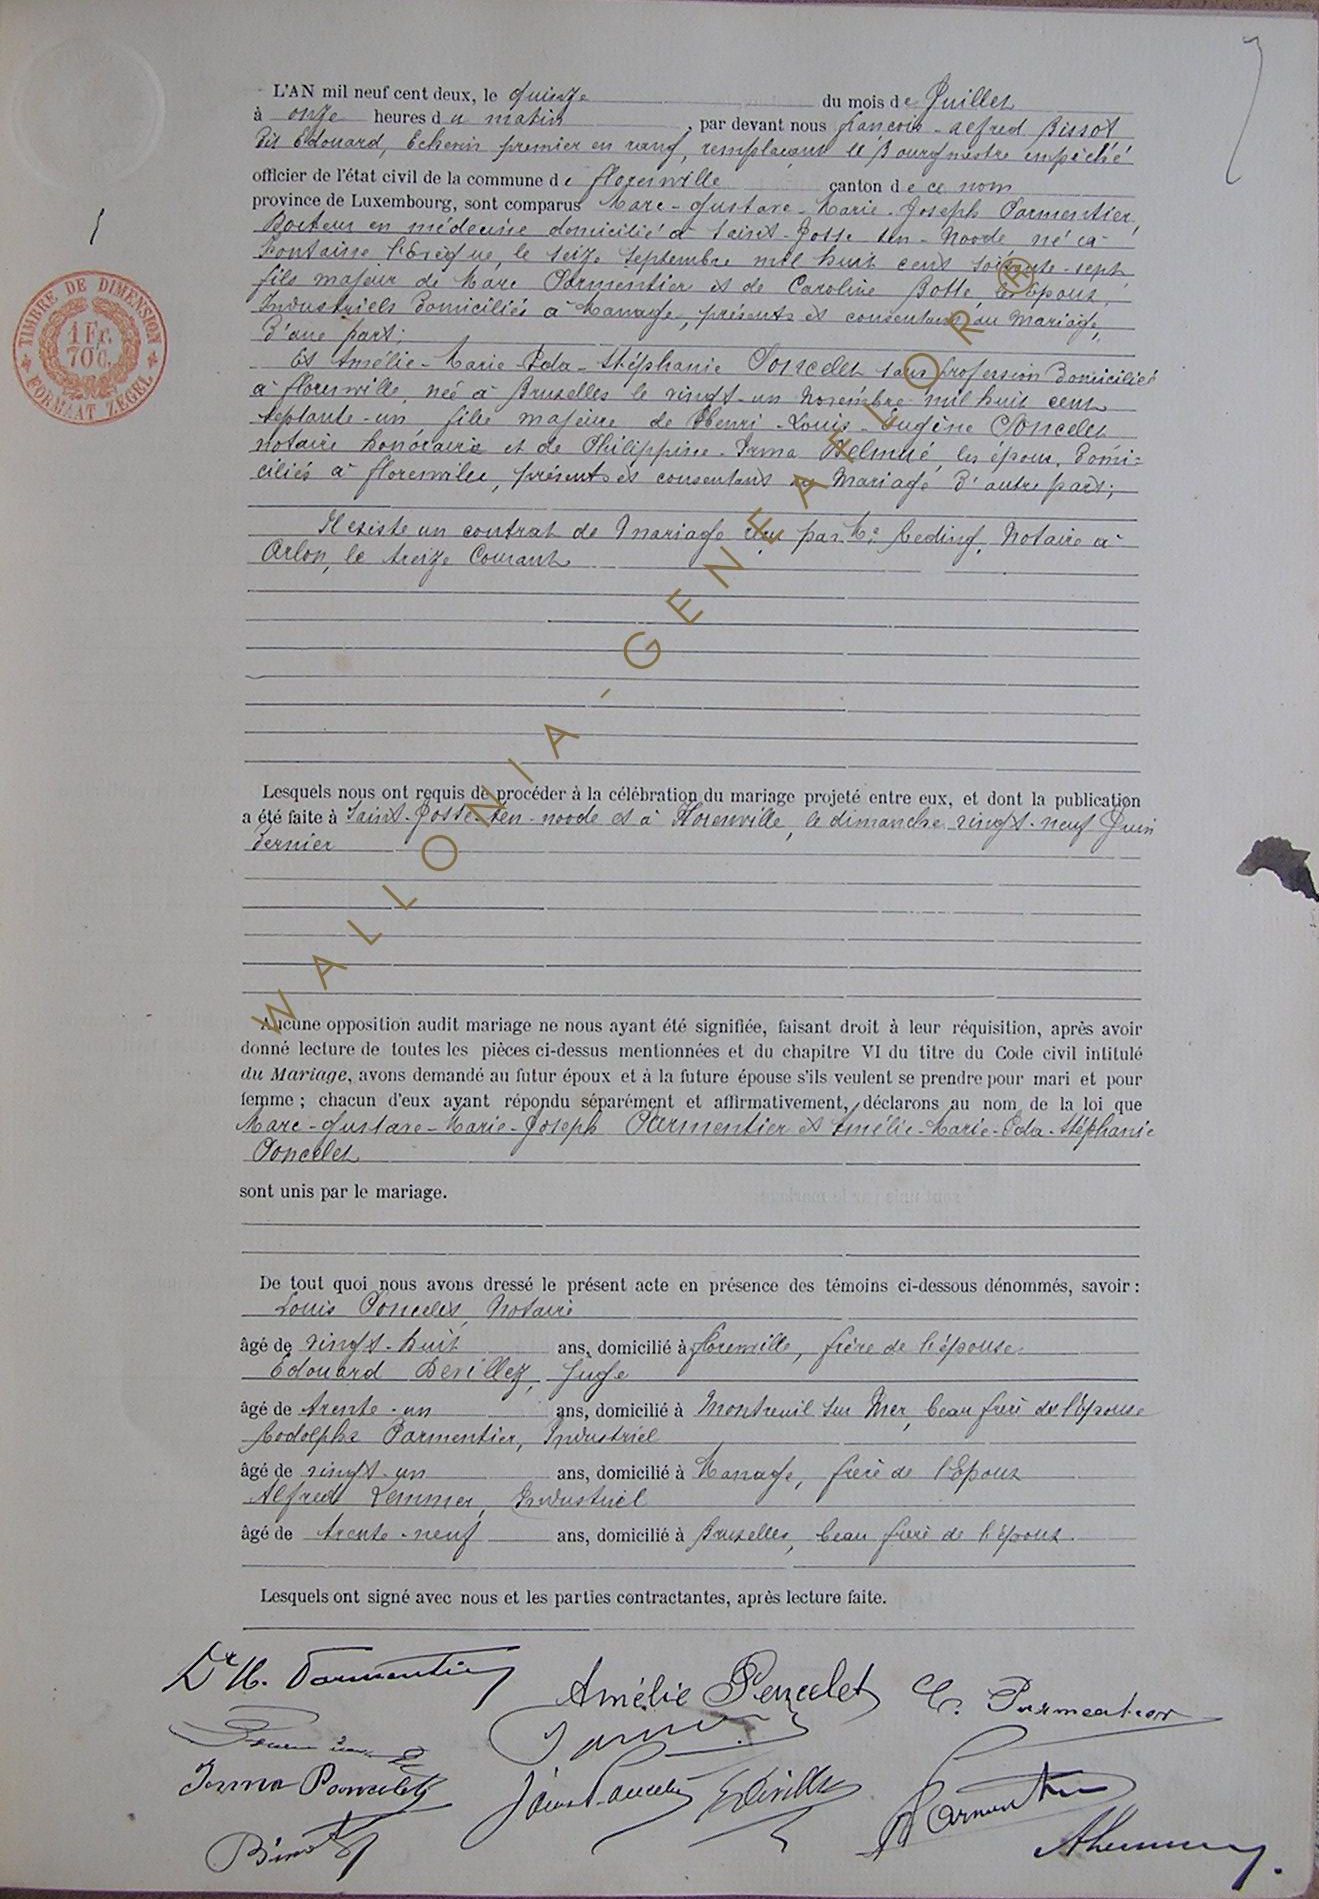 L'AN mil neuf cent deux, le quinze du mois de Juillet
à onze heures du matin, par devant nous françois-alfred Bissot
Dit Edouard, Echevin premier en rang, remplaçant le Bourgmestre empêché
officier de l'état civil de la commune de florenville canton de ce nom
province de Luxembourg, sont comparus Marc-Gustave-Marie-Joseph Parmentier,
Docteur en médecine domicilié à Saint-Josse-ten-Noode, né à
Fontaine l'Evêque, le seize Septembre mil huit cent soixante-sept
fils majeur de Marc Parmentier et de Caroline Botte, les époux,
Industriels Domiciliés à Manage, présents et consentans au Mariage,
D'une part;
Et Amélie-Marie-Oda-Stéphanie Poncelet sans profession Domiciliée
à florenville, née à Bruxelles le vingt-un Novembre mil huit cent
septante-un fille majeure de Henri-Louis-Eugène Poncelet
notaire honoraire et de Philippine-Irma Delmué, les époux, Domi-
ciliés à florenville, présents et consentans au Mariage D'autre part;
Il existe un contrat de Mariage reçu par Me Reding, Notaire à
Arlon, le treize Courant
Lesquels nous ont requis de procéder à la célébration du mariage projeté entre eux, et dont la publication
a été faite à Saint-Josse-ten-noode et à Florenville, le dimanche vingt-neuf Juin
dernier
Aucune opposition audit mariage ne nous ayant été signifiée, faisant droit à leur réquisition, après avoir
donné lecture de toutes les pièces ci-dessus mentionnées et du chapitre VI du titre du Code civil intitulé
du Mariage, avons demandé au futur époux et à la future épouse s'ils veulent se prendre pour mari et pour
femme ; chacun d'eux ayant répondu séparément et affirmativement, déclarons au nom de la loi que
Marc-Gustave-Marie-Joseph Parmentier et Amélie-Marie-Oda-Stéphanie
Poncelet
sont unis par le mariage.
De tout quoi nous avons dressé le présent acte en présence des témoins ci-dessous dénommés, savoir :
Louis Poncelet, Notaire
âgé de vingt-huit ans, domicilié à florenville, frère de l'épouse
Edouard Devillez, Juge
âgé de trente-un ans, domicilié à Montreuil sur Mer, beau frère de l'épouse
Rodolphe Parmentier, Industriel
âgé de vingt-un ans, domicilié à Manage, frère de l'Epoux
Alfred Lemmer, Industriel
âgé de trente-neuf ans, domicilié à Bruxelles, beau frère de l'époux
Lesquels ont signé avec nous et les parties contractantes, après lecture faite.
Dr M. Parmentier Amélie Poncelet C. Parmentier
Irma Poncelet Louis Poncelet EDevillez Parmentier
Bissot ALemmer
TIMBRE DE DIMENSION
1 Fr.
70 C.
FORMAAT ZEGEL
WALLONIA-GENEAFLOR ®